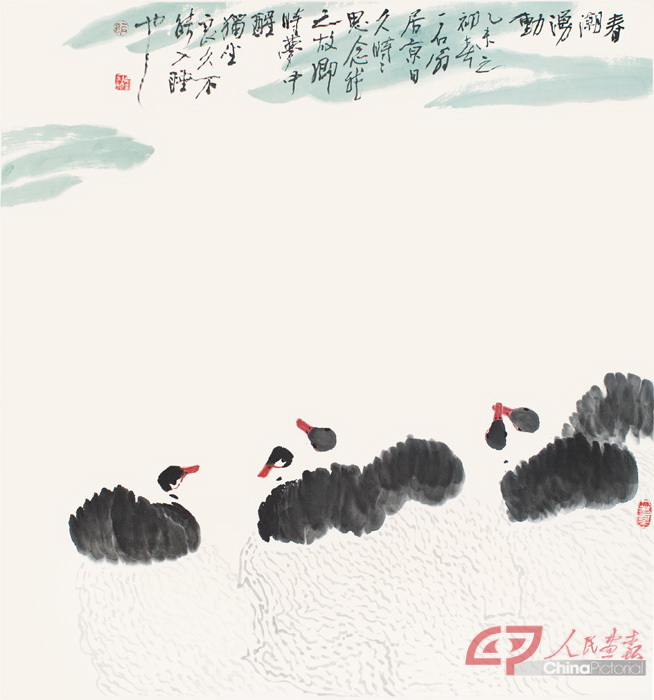 春潮湧動
乙未之
初春
一石翁
居京日
久時々
思念我
之故鄉
時夢中
醒
獨坐
良久不
能入睡
也
人民畫報
ChinaPictorial